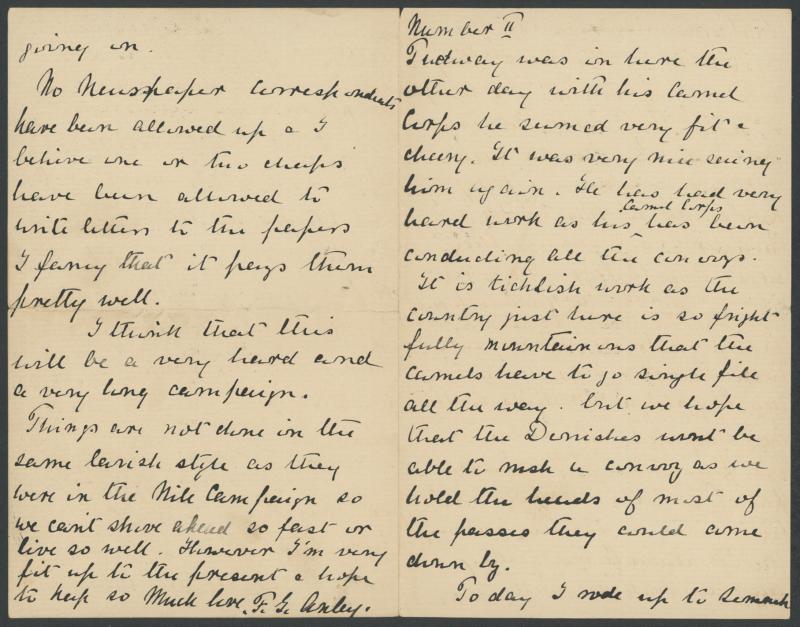 going on.
No Newspaper correspondents
have been allowed up & I
believe one or two chaps
have been allowed to
write letters to the papers
I fancy that it pays them
pretty well.
I think that this
will be a very hard and
a very long campaign.
Things are not done in the
same lavish style as they
were in the Nile Campaign so
we can't shove ahead so fast or
live so well. However I'm very
fit up to the present & hope
to keep so Much love. F. G. Anley.
Number II
Tudway was in here the
other day with his Camel
Corps he seemed very fit &
cheery. It was very nice seeing
him again. He has had very
hard work as his Camel Corps has been
conducting all the convoys.
It is ticklish work as the
country just here is so fright
fully mountainous that the
camels have to go single file
all the way. but we hope
that the Dervishes wont be
able to rush a convoy as we
hold the heads of most of
the passes they could come
down by.
Today I rode up to